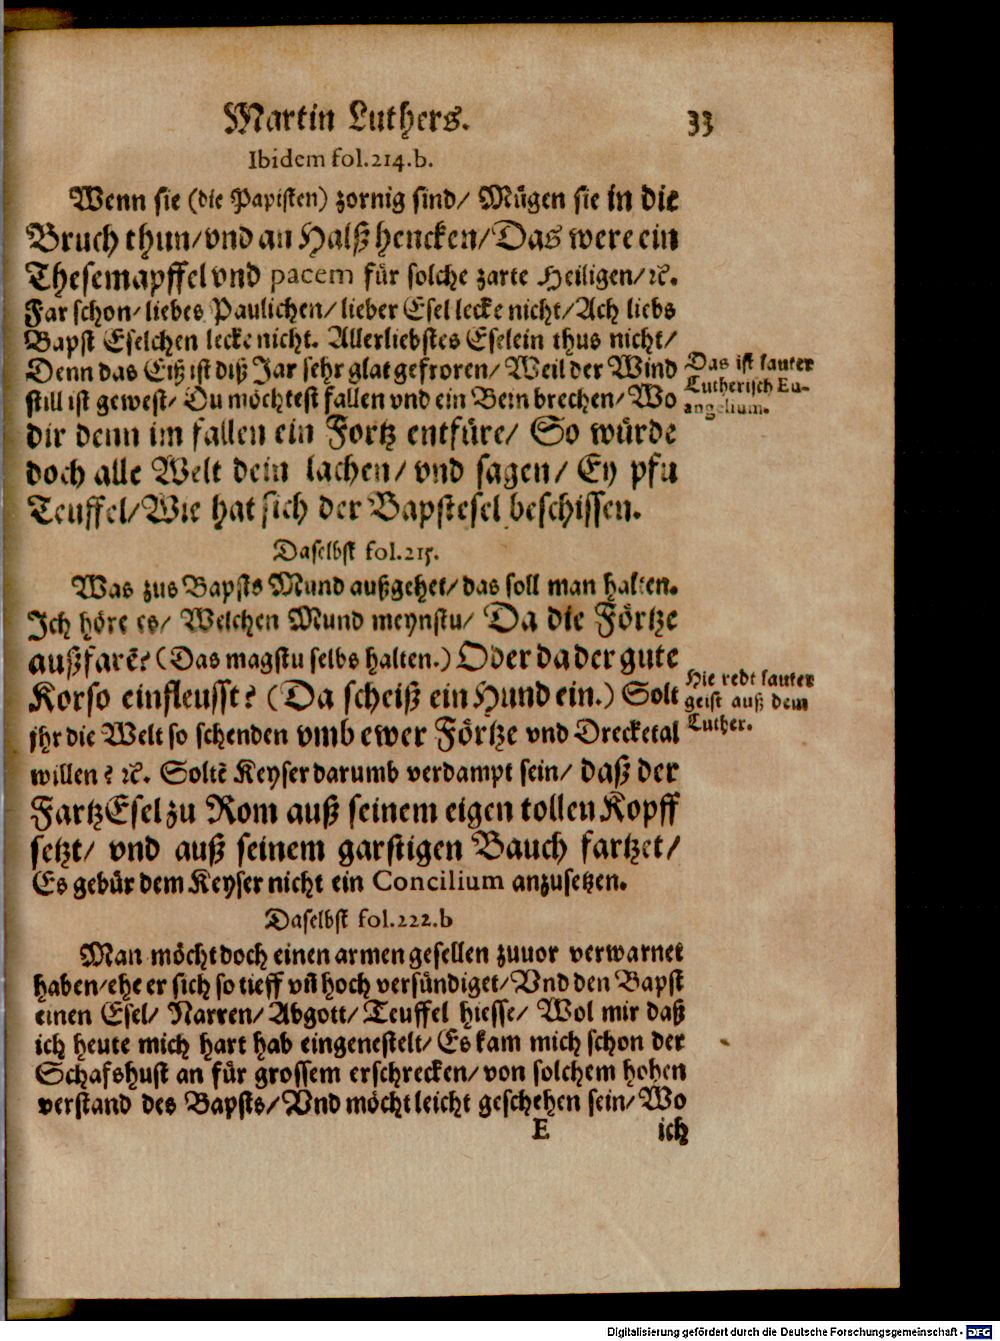 Martin Luthers. 33
Ibidem fol.214.b.
Wenn sie (die Papisten) zornig sind/ Mügen sie in die
Bruch thun/vnd an Halß hencken/Das were ein
Thesemapffel vnd pacem für solche zarte Heiligen/ꝛc.
Far schon/liebes Paulichen/lieber Esel lecke nicht/Ach liebs
Bapst Eselchen lecke nicht. Allerliebstes Eselein thus nicht/
Denn das Eiß ist diß Jar sehr glat gefroren/Weil der Wind
still ist gewest/Du möchtest fallen vnd ein Bein brechen/Wo
dir denn im fallen ein Fortz entfüre/ So würde
doch alle Welt dein lachen/vnd sagen/ Ey pfu
Teuffel/Wie hat sich der Bapstesel beschissen.
Das ist lauter
Lutherisch Eu-
angelium.
Daselbst fol.215.
Was zus Bapsts Mund außgehet/das soll man halten.
Ich höre es/ Welchen Mund meynstu/ Da die Förtze
außfarē?(Das magstu selbs halten.) Oder da der gute
Korso einfleusst? (Da scheiß ein Hund ein.) Solt
jhr die Welt so schenden vmb ewer Förtze vnd Drecketal
willen? ꝛc. Soltē Keyser darumb verdampt sein/ daß der
FartzEsel zu Rom auß seinem eigen tollen Kopff
setzt/ vnd auß seinem garstigen Bauch fartzet/
Es gebür dem Keyser nicht ein Concilium anzusetzen.
Hie redt lauter
geist auß dem
Luther.
Daselbst fol.222.b
Man möcht doch einen armen gesellen zuuor verwarnet
haben/ehe er sich so tieff vñ hoch versündiget/Vnd den Bapst
einen Esel/ Narren/Abgott/Teuffel hiesse/ Wol mir daß
ich heute mich hart hab eingenestelt/Es kam mich schon der
Schafshust an für grossem erschrecken/von solchem hohen
verstand des Bapsts/Vnd möcht leicht geschehen sein/Wo
E ich
Digitalisierung gefördert durch die Deutsche Forschungsgemeinschaft - DFG